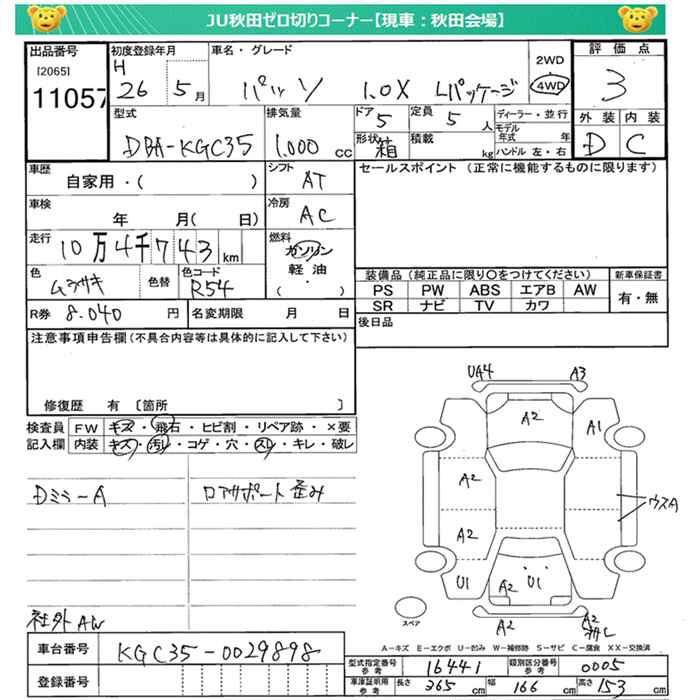 JU秋田ゼロ切りコーナー【現車：秋田会場】
出品番号 初度登録年月 車名・グレード 2WD 評価点
[2065] H 4WD
11057 26 5月 パッソ 1.0X Lパッケージ 3
型式 排気量 ドア 5 定員 5人 ディーラー・並行 外装 内装
モデル年式 年
DBA-KGC35 1.000 cc 形状 箱 積載 kg ハンドル 左・右 D C
車歴 自家用・( ) シフト AT セールスポイント (正常に機能するものに限ります)
車検 年 月( 日) 冷房 AC
走行 10万4千743km 燃料 ガソリン
軽油
・
( )
色 ムラサキ 色替 色コード R54 装備品 (純正品に限り○をつけてください) 新車保証書
PS PW ABS エアB AW 有・無
SR ナビ TV カワ
R券 8.040 円 名変期限 月 日 後日品
注意事項申告欄(不具合内容等は具体的に記入して下さい)
修復歴 有 〔箇所 〕
検査員 FW キズ・飛石・ヒビ割・リペア跡・×要
記入欄 内装 キズ・汚レ・コゲ・穴・スレ・キレ・破レ
Dミラー A ロアサポート歪み
社外AW
UA4 A3
A2 A1
A2
ウスA
A2
U1 A2 U1
スペア A2 A2
A-キズ E-エクボ U-凹み W-補修跡 S-サビ C-腐食 XX-交換済
車台番号 KGC35-0029898
型式指定番号 参考 16441 類別区分番号 参考 0005
登録番号 車庫証明用 参考 長さ 365cm 幅 166cm 高さ 153cm